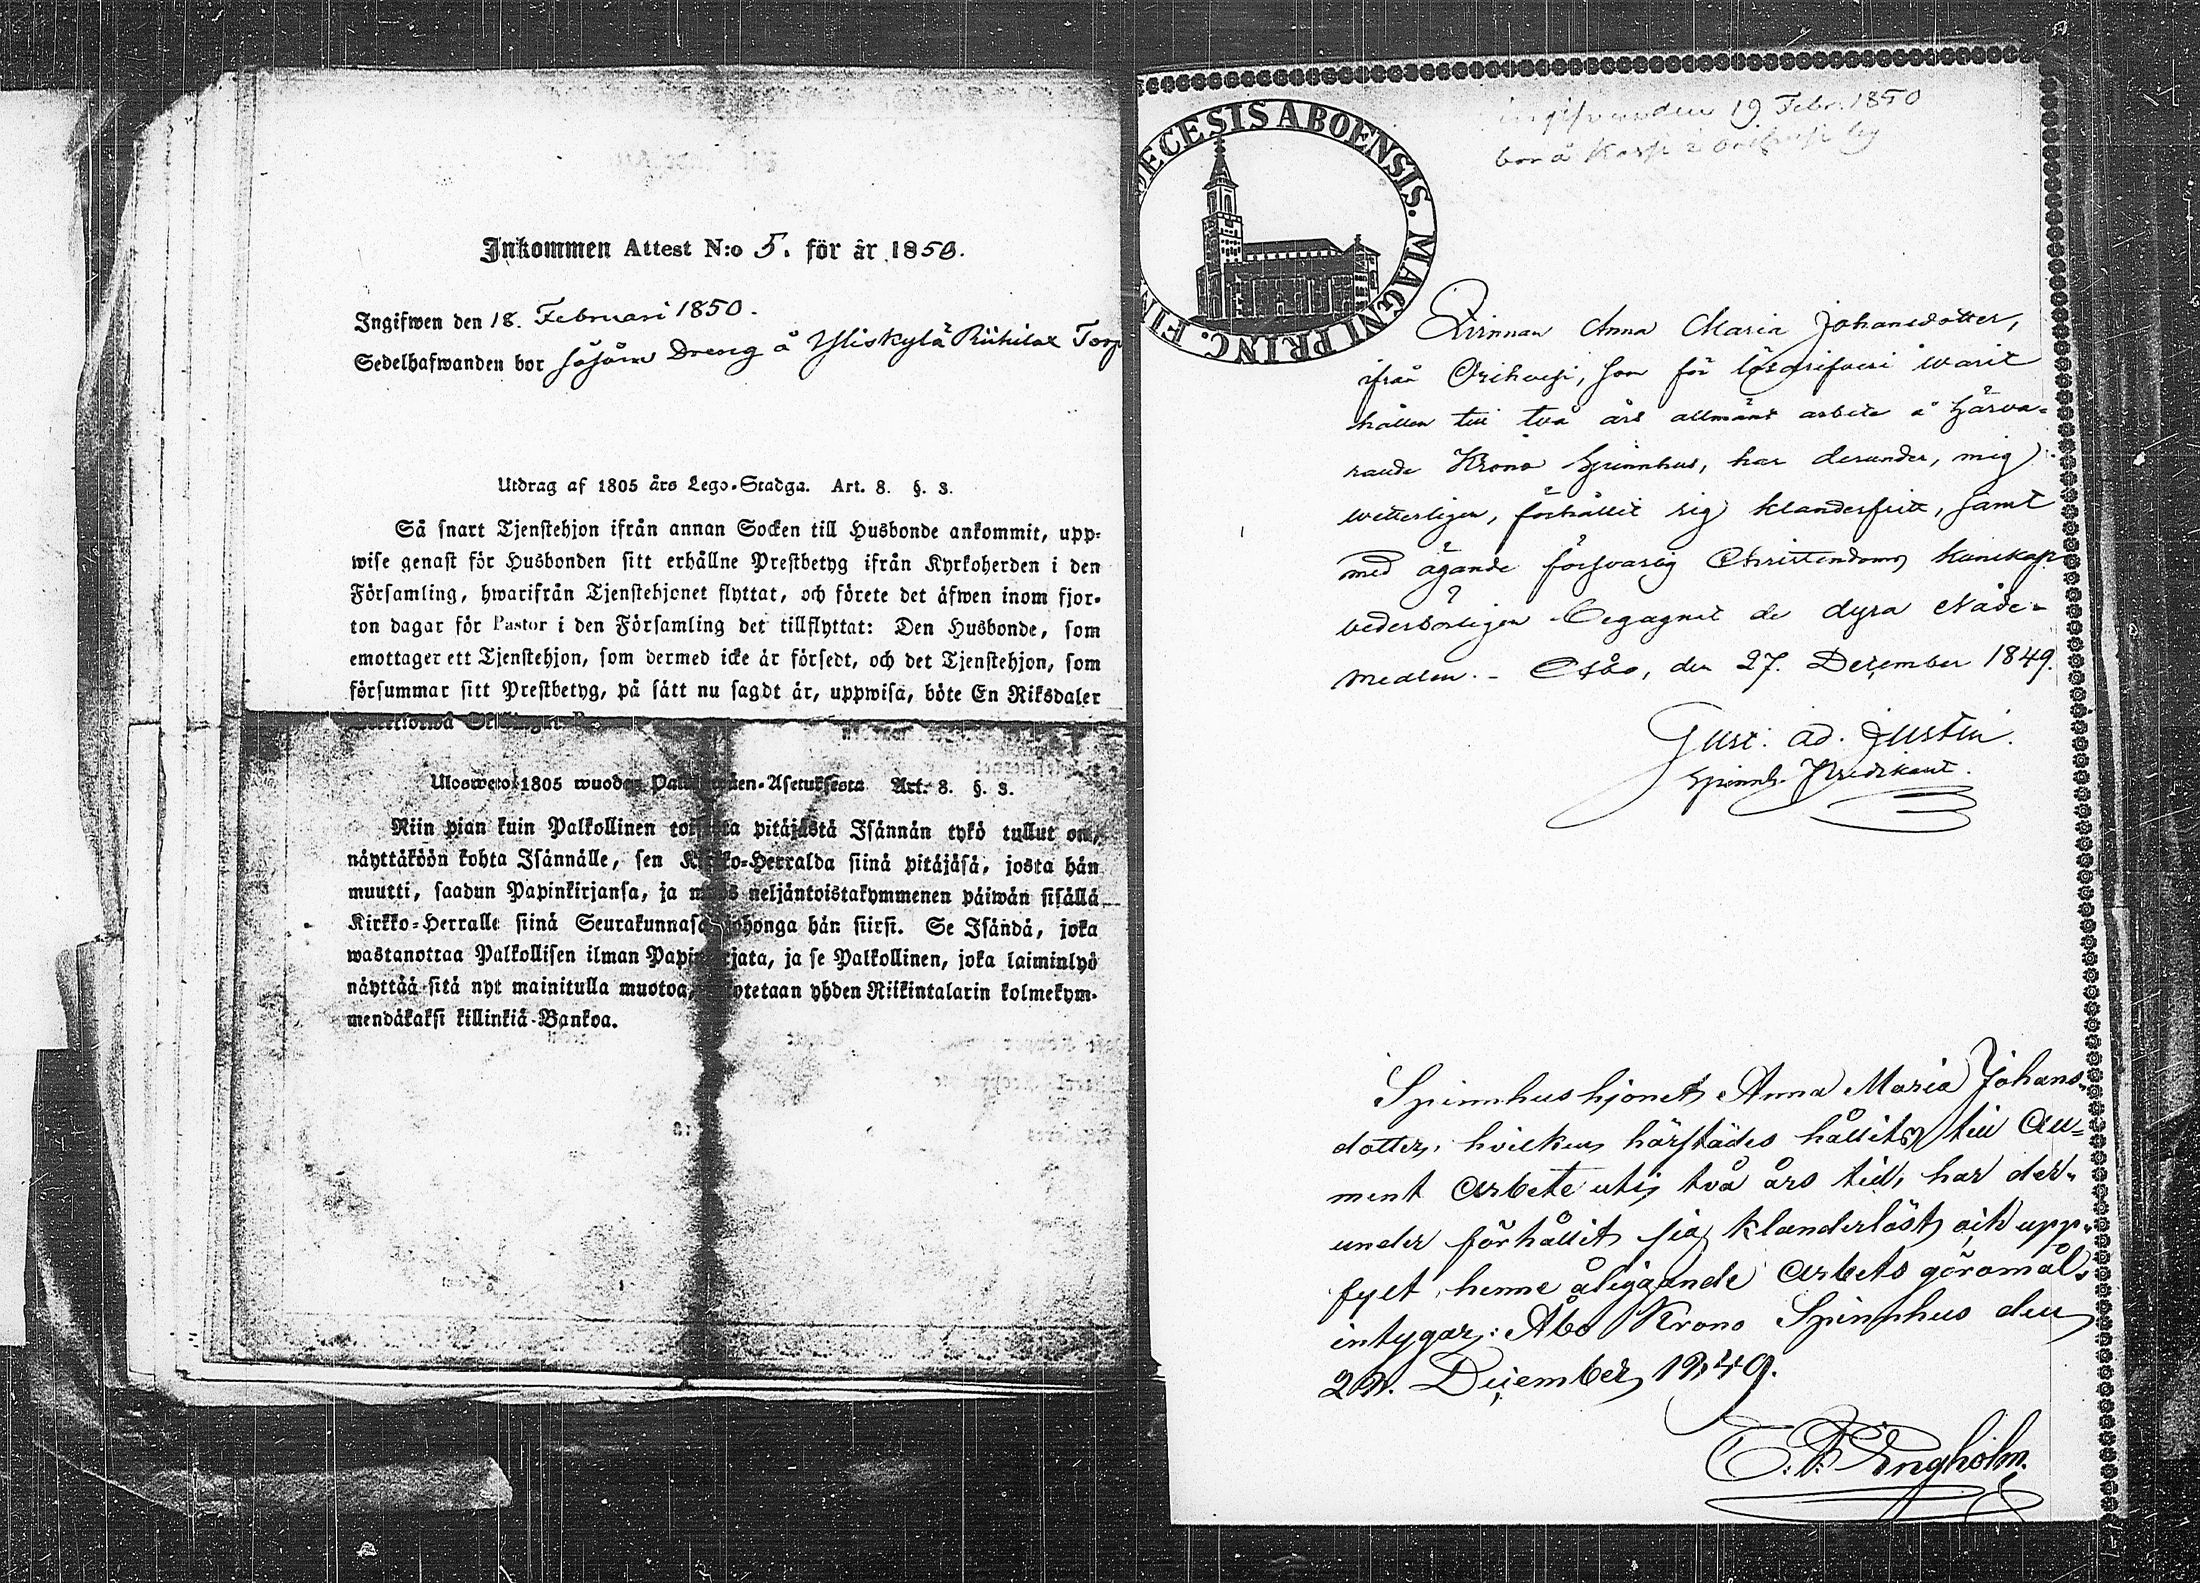 Inkommen Attest N:o 5. för år 1850.
Ingifwen den 18. Februari 1850.
Sedelhafwanden bor såsom Dreng å Yliskylä Riihilax Torp
Utdrag af 1805 års Lego-Stadga. Art. 8. §. 3.
Så snart Tjenstehjon ifrån annan Socken till Husbonde ankommit, upp-
wise genast för Husbonden sitt erhållne Prestbetyg ifrån Kyrkoherden i den
Församling, hwarifrån Tjenstehjonet flyttat, och förete det äfwen inom fjor-
ton dagar för Pastor i den Församling det tillflyttat: Den Husbonde, som
emottager ett Tjenstehjon, som dermed icke är försedt, och det Tjenstehjon, som
försummar sitt Prestbetyg, på sätt nu sagdt är, uppwisa, böte En Riksdaler
Uloswetos 1805 wuoden Asetuksesta Art. 8. §. 3.
Niin pian kuin Palkollinen toisesta pitäjästä Isännän tykö tullut on,
näyttäköön kohta Isännälle, sen Kirkko-Herralda siinä pitäjäsä, josta hän
muutti, saadun Papinkirjansa, ja myös neljäntoistakymmenen päiwän sisällä
Kirkko-Herralle siinä Seurakunnasa johonga hän siirsi. Se Isändä, joka
wastanottaa Palkollisen ilman Papinkirjata, ja se Palkollinen, joka laiminlyö
näyttää sitä nyt mainitulla muotoa, sakotetaan yhden Riikintalarin kolmekym-
mendäkaksi killinkiä Bankoa.
DECESIS ABOENSIS. MAGNI PRINC. FIN
ingifven den 19 Febr. 1850
bor å
Qvinnan Anna Maria Johansdotter,
ifrån Orihvesi, som för lösdrifveri warit
hållen till två års allmänt arbete å härva-
rande Krono Spinnhus, har derunder, mig
vetterligen, förhållit sig klanderfritt, samt
med ägande försvarlig Christendoms kunskap
vederbörligen begagnat de dyra Nåde-
medlen. - Åbo, den 27. December 1849.
Gust. Ad. Justin.
Spinnh. Predikant.
Spinnhushjonet Anna Maria Johans-
dotter, hvilken härstädes hållits till All-
mänt Arbete uti två års tid, har der-
under förhållit sig klanderlöst och upp-
fylt henne åliggande Arbets göromål,
intygar; Åbo Krono Spinnhus den
28. December 1849.
Engholm.